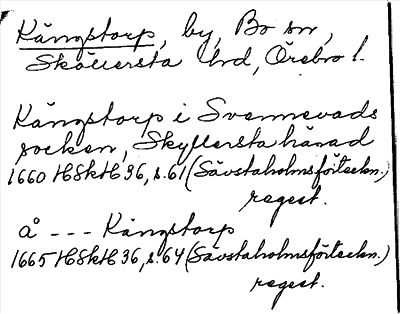 Kängstorp, by, Bo sn,
Sköllersta hd, Örebro l.
Kängstorp i Svennevads
socken, Skyllersta härad
1660 HSkH 36, s. 61 (Sävstaholmsförteckn.)
regest.
å --- Kängstorp
1665 HSkH 36, s. 64 (Sävstaholmsförteckn.)
regest.